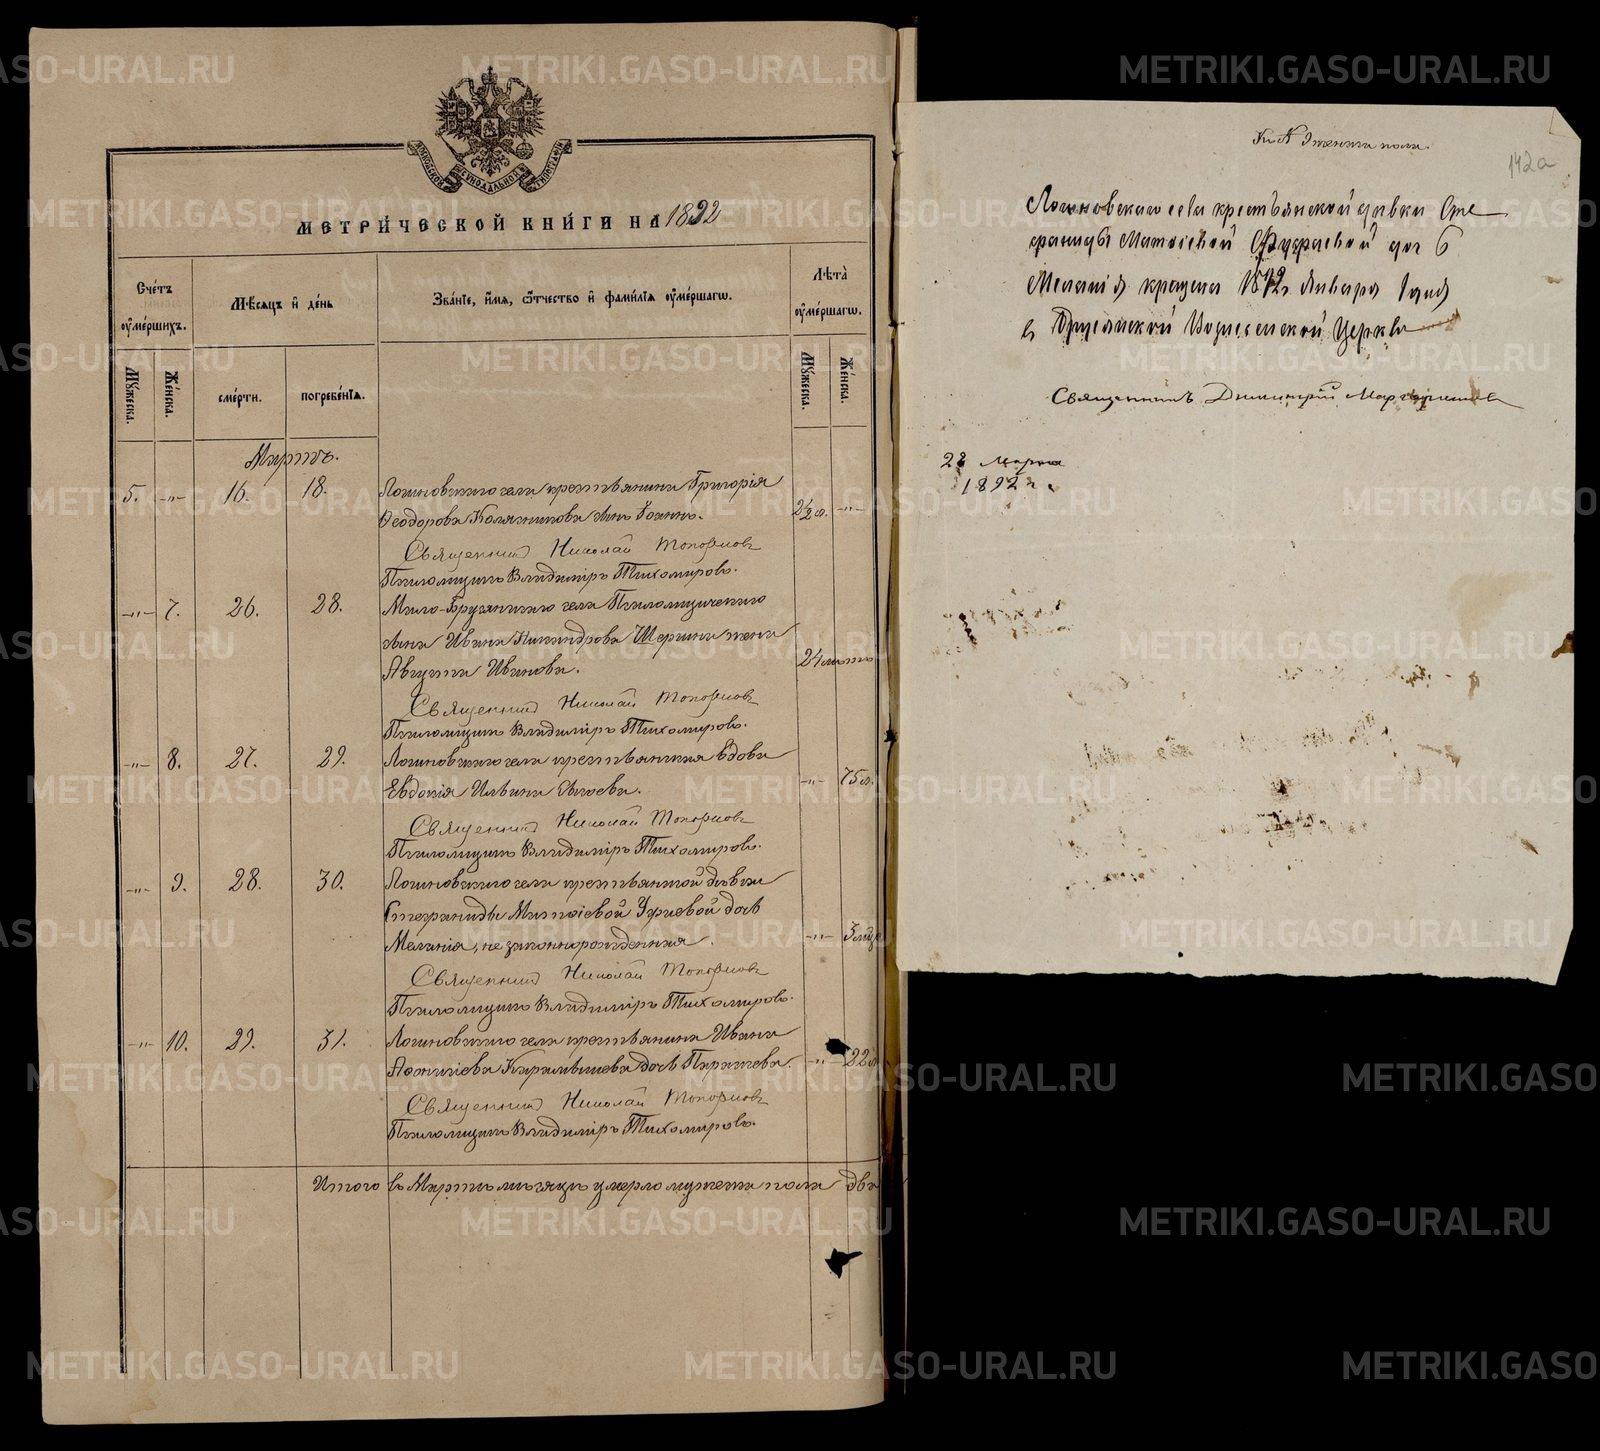 МОСКОВСКОЙ СѴНОДАЛЬНОЙ ТИПОГРАФІИ
МЕТРИ́ЧЕСКОЙ КНИ́ГИ НА 1892
Сче́тъ ᲂу҆ме́ршихъ.
Мꙋ́жеска.
Же́нска.
Мѣ́сѧцъ и҆ де́нь
сме́рти.
погребе́нїѧ.
Зва́нїе, и҆́мѧ, ѻ҆́тчество и҆ фами́лїѧ ᲂу҆ме́ршагѡ.
Лѣ̑та̀ ᲂу҆ме́ршагѡ.
Мꙋ́жеска.
Же́нска.
Мартъ.
5. -"- 16. 18. Логиновскаго села крестьянина Григорія
Ѳеодорова сынъ Іоаннъ. 2½ л. -"-
Священникъ Николай Топорковъ
Псаломщикъ Владиміръ Тихомировъ.
-"- 7. 26. 28. Мало-Брусянскаго села Псаломщическаго
сына Ивана Никандрова Шергина жена
Августа Иванова. 24 лѣтъ
Священникъ Николай Топорковъ
Псаломщикъ Владиміръ Тихомировъ.
-"- 8. 27. 29. Логиновскаго села крестьянская вдова
Евдокія Ильина -"- 75 л.
Священникъ Николай Топорковъ
Псаломщикъ Владиміръ Тихомировъ.
-"- 9. 28. 30. Логиновскаго села крестьянской дѣвки
Стефаниды Матѳіевой дочь
Меланія, незаконнорожденная. -"- 3 мѣс
Священникъ Николай Топорковъ
Псаломщикъ Владиміръ Тихомировъ.
-"- 10. 29. 31. Логиновскаго села крестьянина Ивана
дочь Параскева. -"- 22 л
Священникъ Николай Топорковъ
Псаломщикъ Владиміръ Тихомировъ.
Итого въ Мартѣ мѣсяцѣ умерло мужеска пола два
Къ № 9 женска пола.
142а
Логиновскаго села крестьянской дѣвки Сте
фаниды Матѳіевой дочь
Меланія крещена 1892 г. Января 1 дня
въ Брусянской Вознесенской Церкви
Священникъ Димитрій
28 Марта
1892 г.